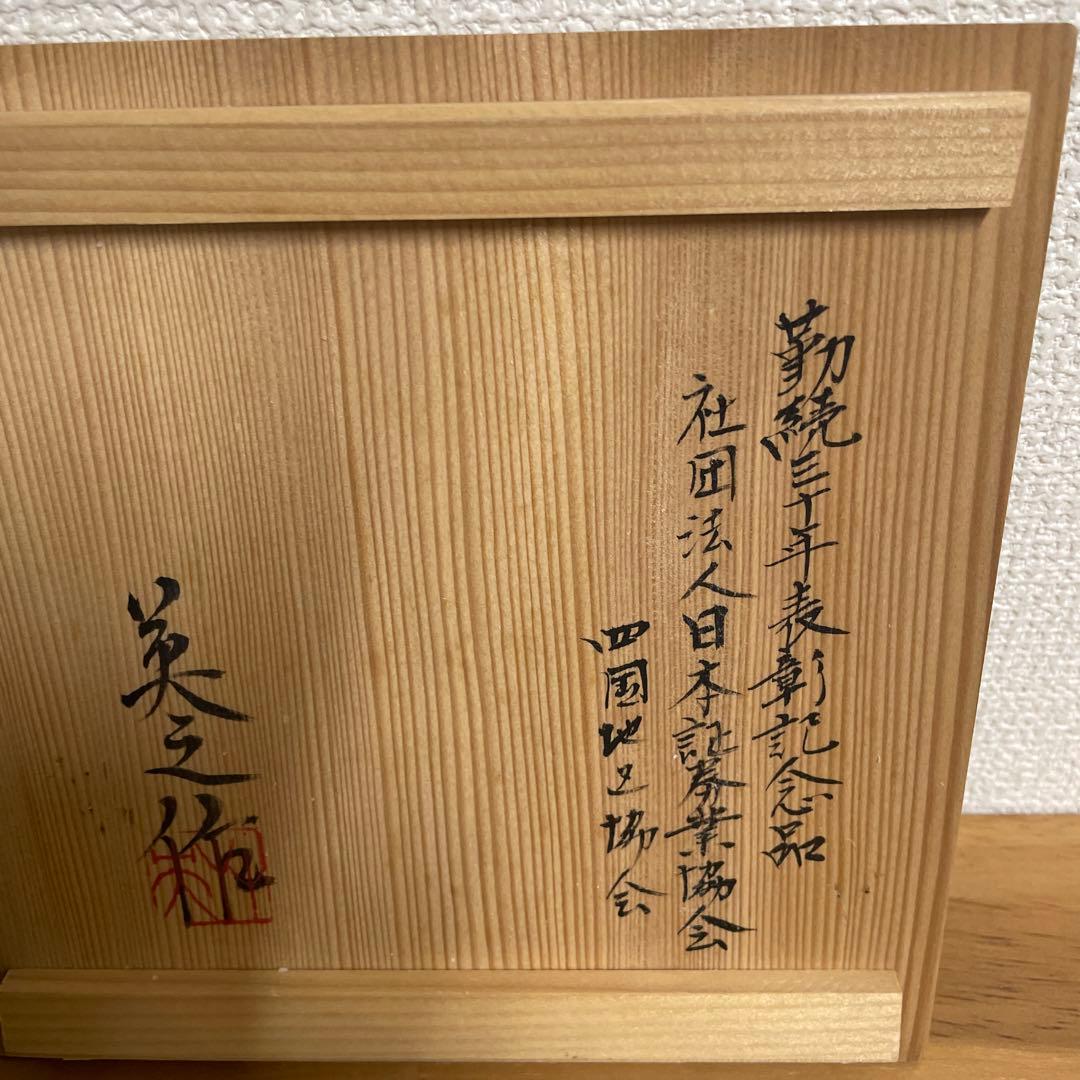 勤続三十年表彰記念品
社団法人日本証券業協会
四国地区協会
英之作